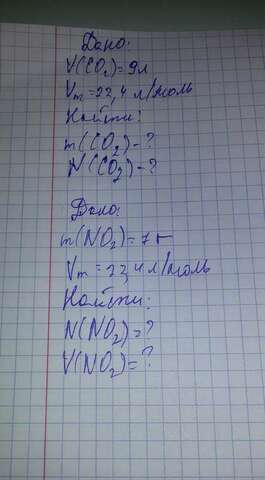 Дано:
V(CO₂)=9л
Vm=22,4 л/моль
Найти:
m(CO₂)-?
N(CO₂)-?
Дано:
m(NO₂)=7г
Vm=22,4 л/моль
Найти:
N(NO₂)=?
V(NO₂)=?